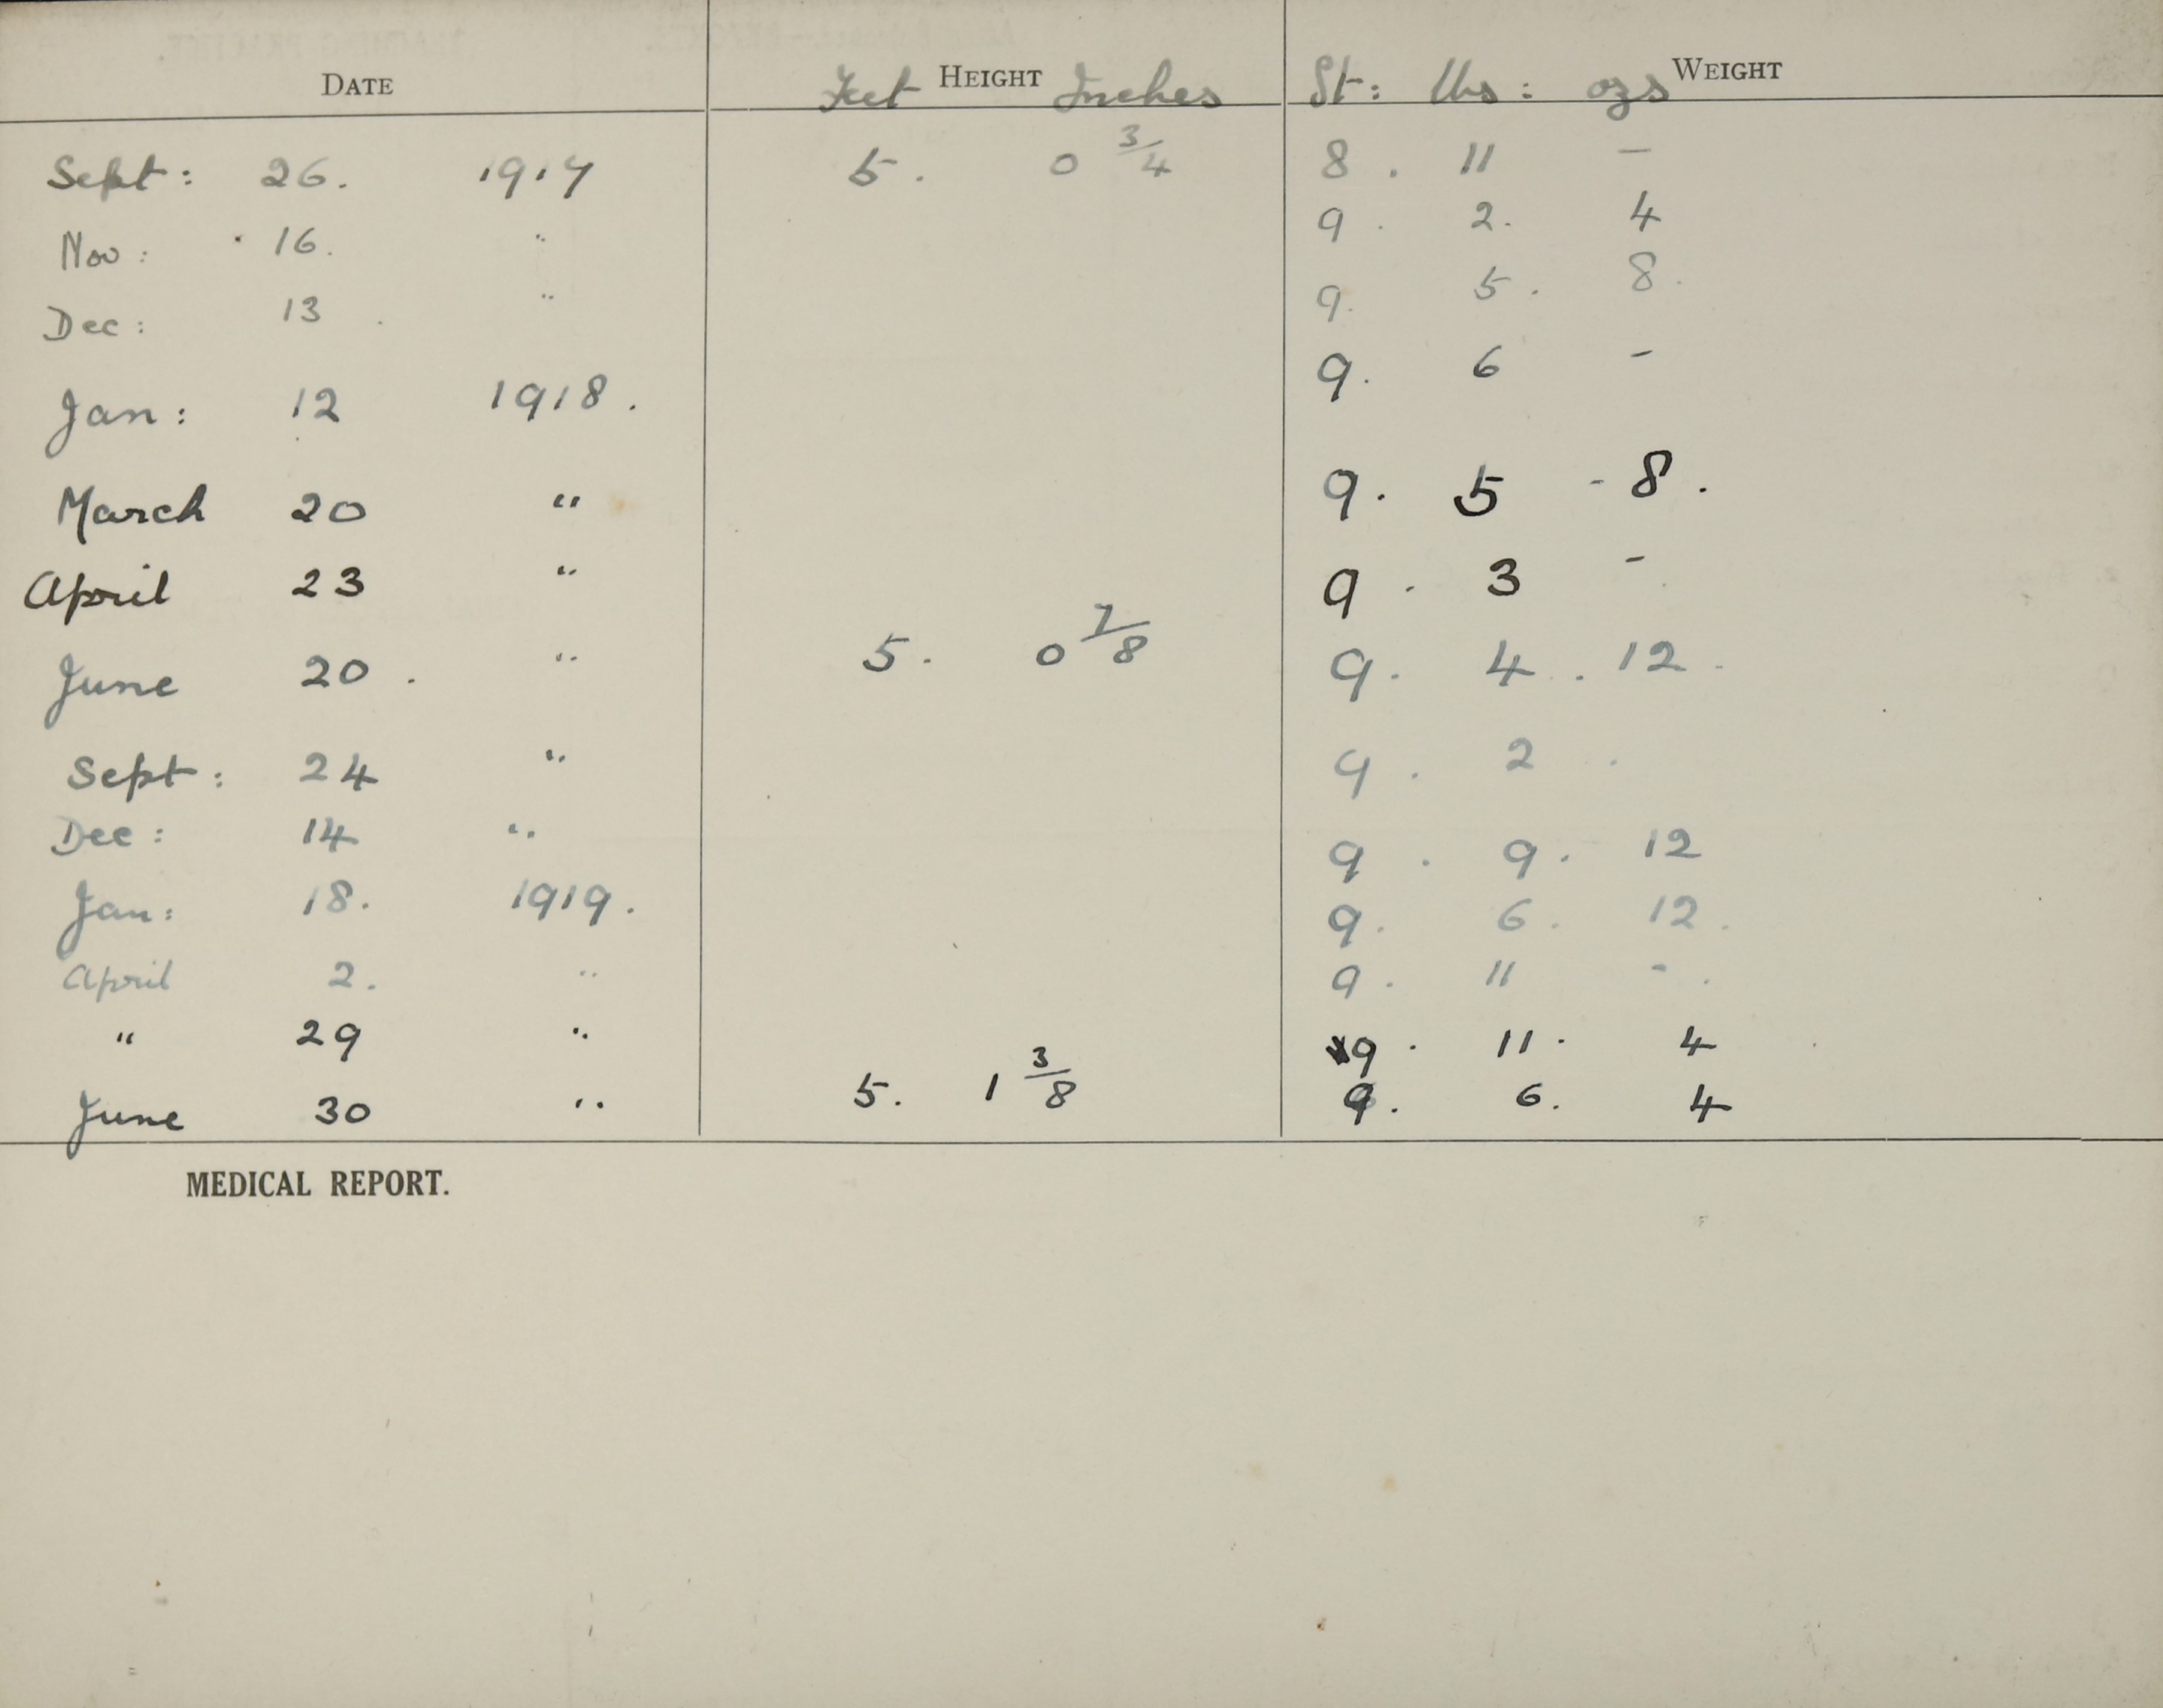 DATE Feet HEIGHT Inches St: lbs: ozs WEIGHT
Sept: 26. 1917 5. 0 3/4 8. 11 –
Nov: 16. " 9. 2. 4
Dec: 13. " 9. 5. 8.
Jan: 12 1918. 9. 6 –
March 20 " 9. 5 - 8.
April 23 " 9. 3 -
June 20. " 5. 0 7/8 9. 4. 12.
Sept: 24 " 9. 2.
Dec: 14 " 9. 9. 12
Jan: 18. 1919. 9. 6. 12.
April 2. " 9. 11 - .
" 29 " 9. 11. 4
June 30 " 5. 1 3/8 9. 6. 4
MEDICAL REPORT.